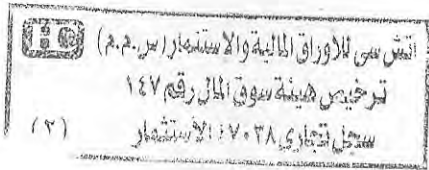 اتش سى للاوراق المالية والاستثمار (س.م.م) HC
ترخيص هيئة سوق المال رقم ١٤٧
سجل تجارى ١٧٠٣٨ الاستثمار (٢)